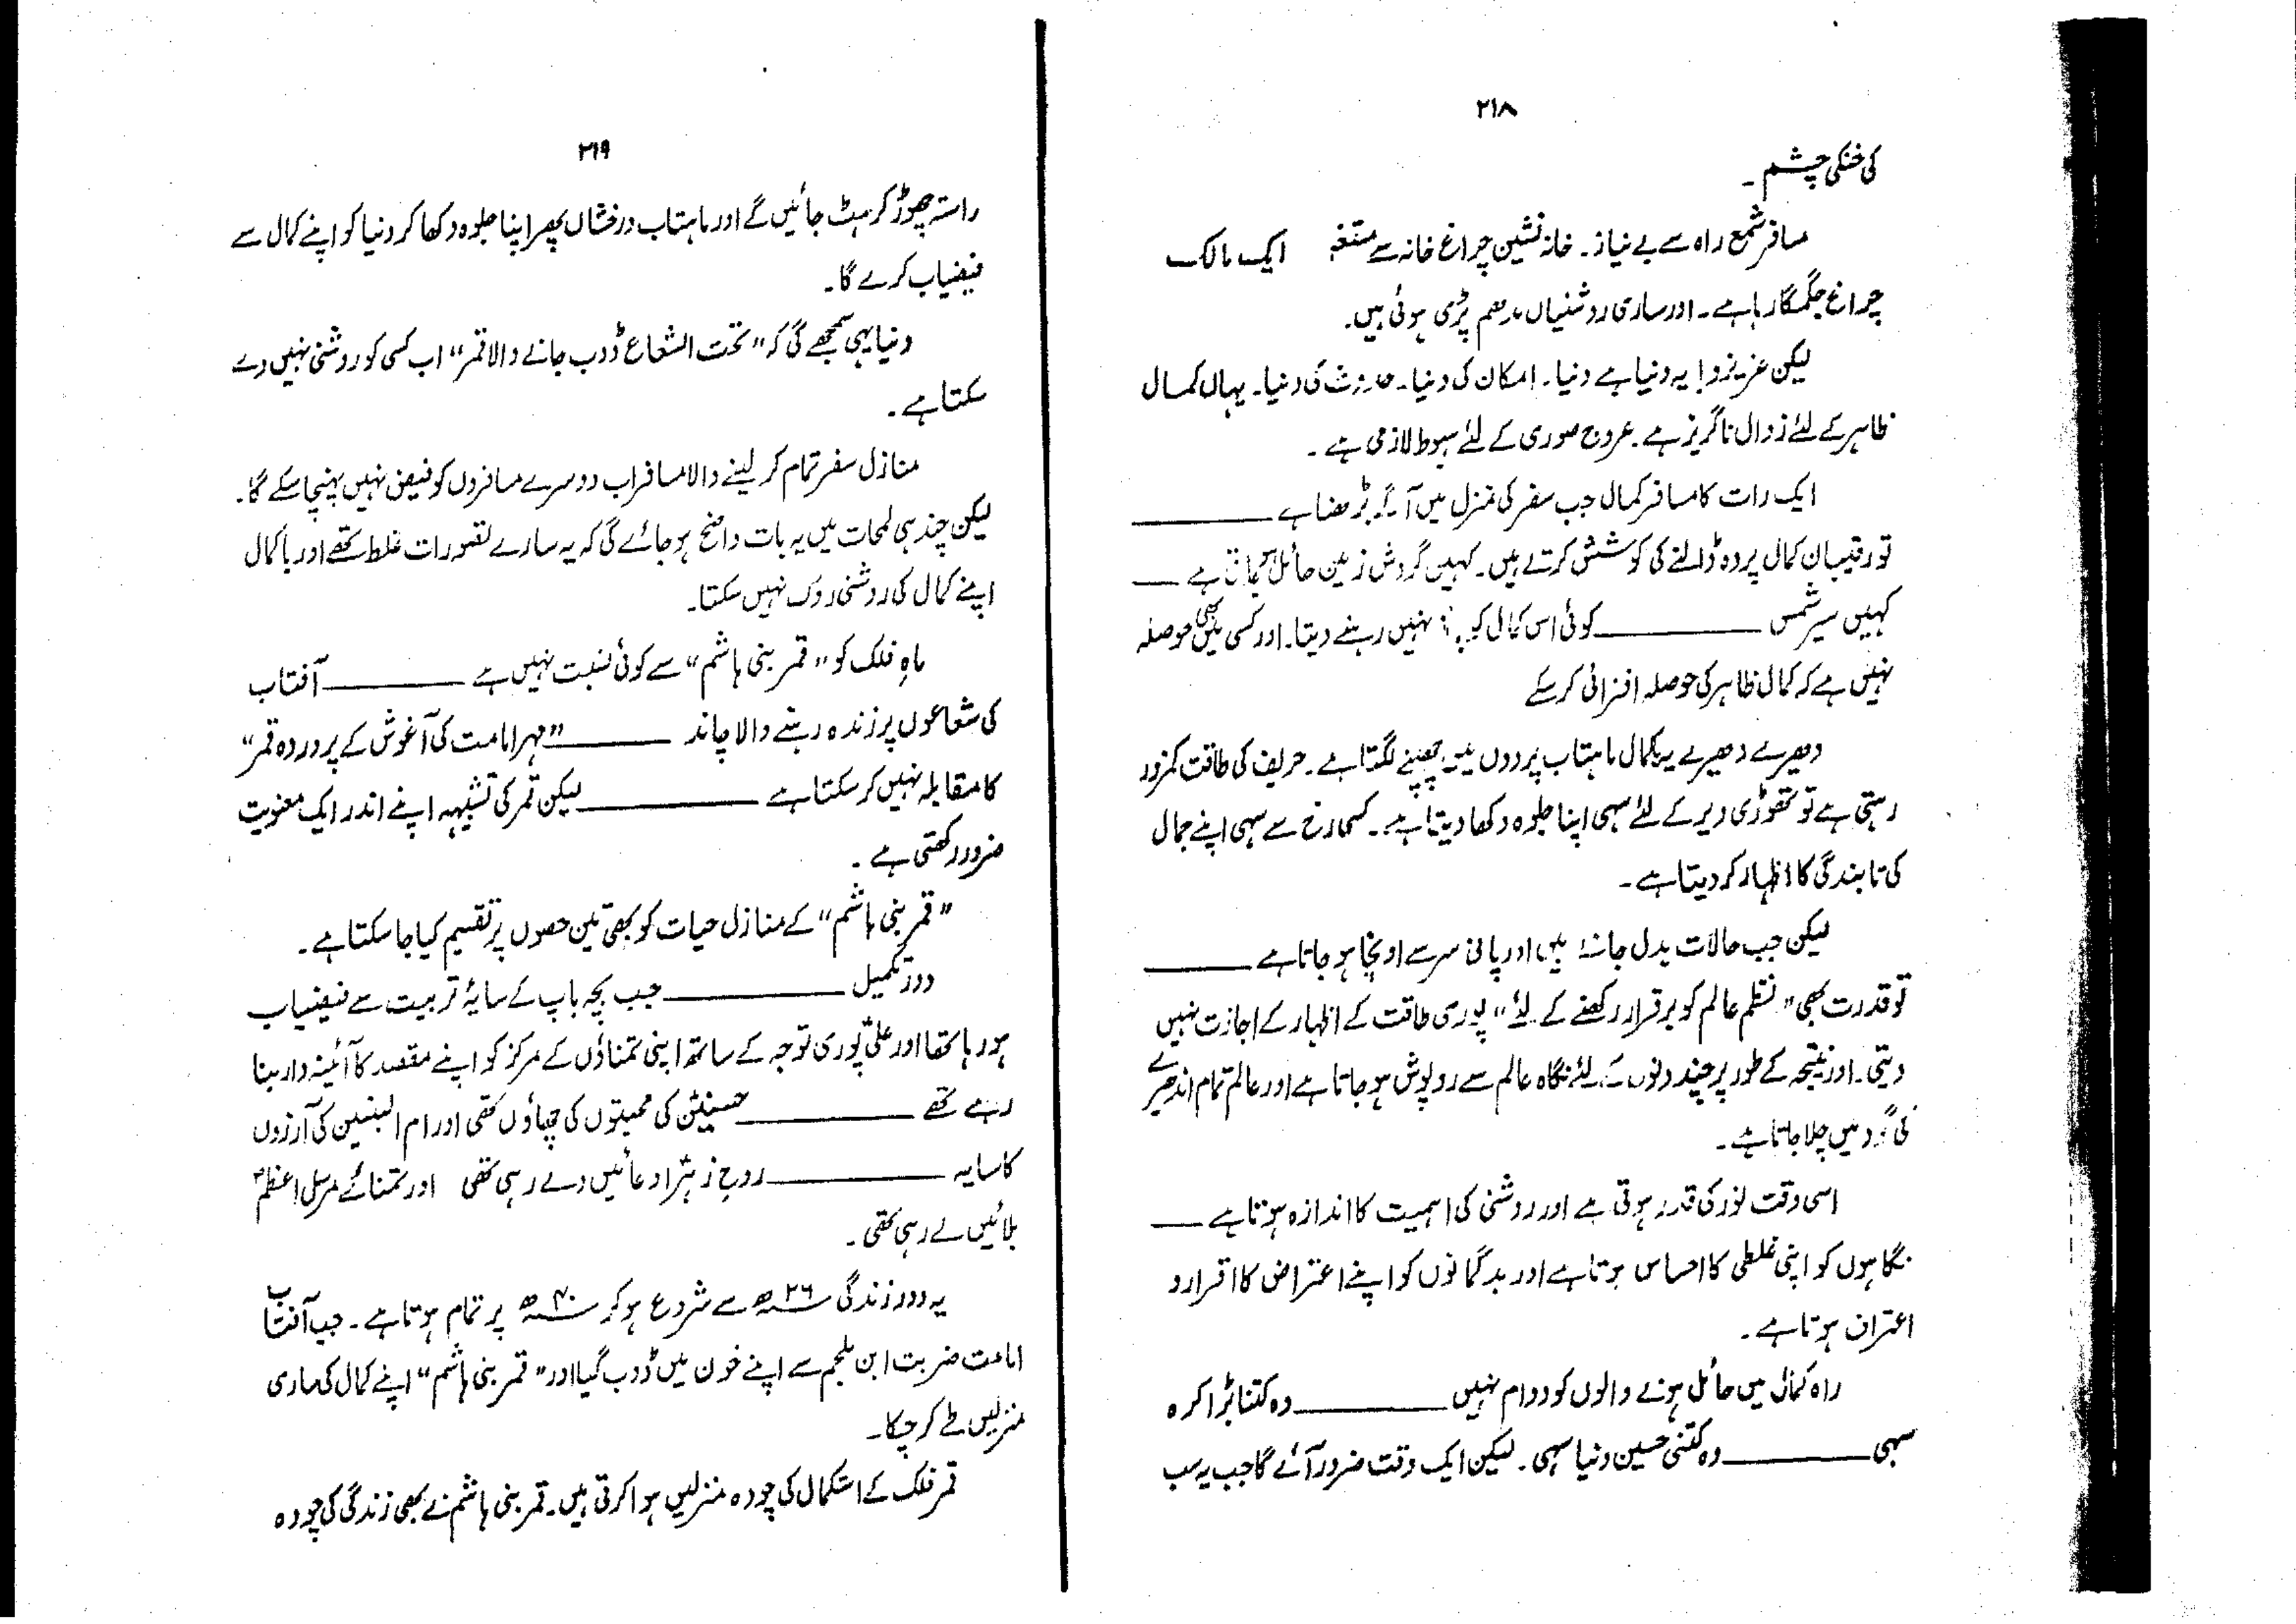 ۲۱۸
کی خنکی چشم ۔
مسافر شمع راہ سے بے نیاز ۔ خانہ نشین چراغ خانہ سے ایک مالک
چراغ جگمگا رہا ہے ۔ اور ساری روشنیاں مدھم پڑی ہوئی ہیں۔
لیکن عزیزو! یہ دنیا ہے دنیا۔ امکان کی دنیا۔ حادث کی دنیا۔ یہاں کمال
ظاہر کے لئے زوال ناگریز ہے ۔ عروج صوری کے لئے ہبوط لازمی ہے ۔
ایک رات کا مسافر کمال جب سفر کی منزل میں آگے بڑھتا ہے ــــــــ
تو رقیبان کمال پردہ ڈالنے کی کوشش کرتے ہیں۔ کہیں گردش زمین حائل ہے ــــ
کہیں سیر شمس ــــــــ کوئی اس کمال کو نہیں رہنے دیتا۔ اور کسی میں بھی حوصلہ
نہیں ہے کہ کمال ظاہر کی حوصلہ افزائی کر سکے
دھیرے دھیرے یہ کمال ماہتاب پردوں میں چھپنے لگتا ہے ۔ حریف کی طاقت کمزور
رہتی ہے تو تھوڑی دیر کے لئے سہی اپنا جلوہ دکھا دیتا ہے ۔ کسی رخ سے سہی اپنے جمال
کی تابندگی کا اظہار کر دیتا ہے ۔
لیکن جب حالات بدل جاتے ہیں اور پانی سر سے اونچا ہو جاتا ہے ــــــــ
تو قدرت بھی " نظم عالم کو برقرار رکھنے کے لئے " پوری طاقت کے اظہار کے اجازت نہیں
دیتی ۔ اور نتیجہ کے طور پر چند دنوں کے لئے نگاہ عالم سے روپوش ہو جاتا ہے اور عالم تمام اندھیرے
کی گود میں چلا جاتا ہے ۔
اسی وقت نور کی قدر ہوتی ہے اور روشنی کی اہمیت کا اندازہ ہوتا ہے ــــ
نگاہوں کو اپنی غلطی کا احساس ہوتا ہے اور بدگمانوں کو اپنے اعتراض کا اقرار و
اعتراف ہوتا ہے ۔
راہ کمال میں حائل ہونے والوں کو دوام نہیں ــــــــ وہ کتنا بڑا کرہ
سہی ــــــــ وہ کتنی حسین دنیا سہی ۔ لیکن ایک وقت ضرور آئے گا جب یہ سب
۲۱۹
راستہ چھوڑ کر ہٹ جائیں گے اور ماہتاب درخشاں پھر اپنا جلوہ دکھا کر دنیا کو اپنے کمال سے
فیضیاب کرے گا۔
دنیا یہی سمجھے گی کہ " تحت الشعاع ڈوب جانے والا قمر " اب کسی کو روشنی نہیں دے
سکتا ہے ۔
منازل سفر تمام کر لینے والا مسافر اب دوسرے مسافروں کو فیض نہیں پہنچا سکے گا۔
لیکن چند ہی لمحات میں یہ بات واضح ہو جائے گی کہ یہ سارے تصورات غلط تھے اور باکمال
اپنے کمال کی روشنی روک نہیں سکتا۔
ماہِ فلک کو " قمر بنی ہاشم " سے کوئی نسبت نہیں ہے ــــــــ آفتاب
کی شعاعوں پر زندہ رہنے والا چاند ــــــــ " مہر امامت کی آغوش کے پروردہ قمر "
کا مقابلہ نہیں کر سکتا ہے ــــــــ لیکن قمر کی تشبیہہ اپنے اندر ایک معنویت
ضرور رکھتی ہے ۔
" قمر بنی ہاشم " کے منازل حیات کو بھی تین حصوں پر تقسیم کیا جا سکتا ہے ۔
دور تکمیل ــــــــ جب بچہ باپ کے سایۂ تربیت سے فیضیاب
ہو رہا تھا اور علیؑ پوری توجہ کے ساتھ اپنی تمناؤں کے مرکز کو اپنے مقصد کا آئینہ دار بنا
رہے تھے ــــــــ حسنینؑ کی محبتوں کی چھاؤں تھی اور ام البنین کی آرزوں
کا سایہ ــــــــ روح زہراؑ دعائیں دے رہی تھی اور تمنائے مرسل اعظمؐ
بلائیں لے رہی تھی ۔
یہ دور زندگی ۲۶ھ سے شروع ہو کر ۴۰ھ پر تمام ہوتا ہے ۔ جب آفتاب
امامت ضربت ابن ملجم سے اپنے خون میں ڈوب گیا اور " قمر بنی ہاشم " اپنے کمال کی ساری
منزلیں طے کر چکا۔
قمر فلک کے استکمال کی چودہ منزلیں ہوا کرتی ہیں۔ قمر بنی ہاشم نے بھی زندگی کی چودہ